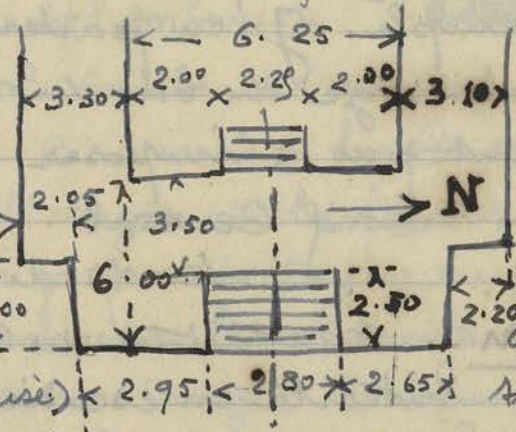 6.25
3.30 2.00 2.25 2.00 3.10
N
2.05
3.50
6.00
2.50
00
2.20
2.95 2.80 2.65